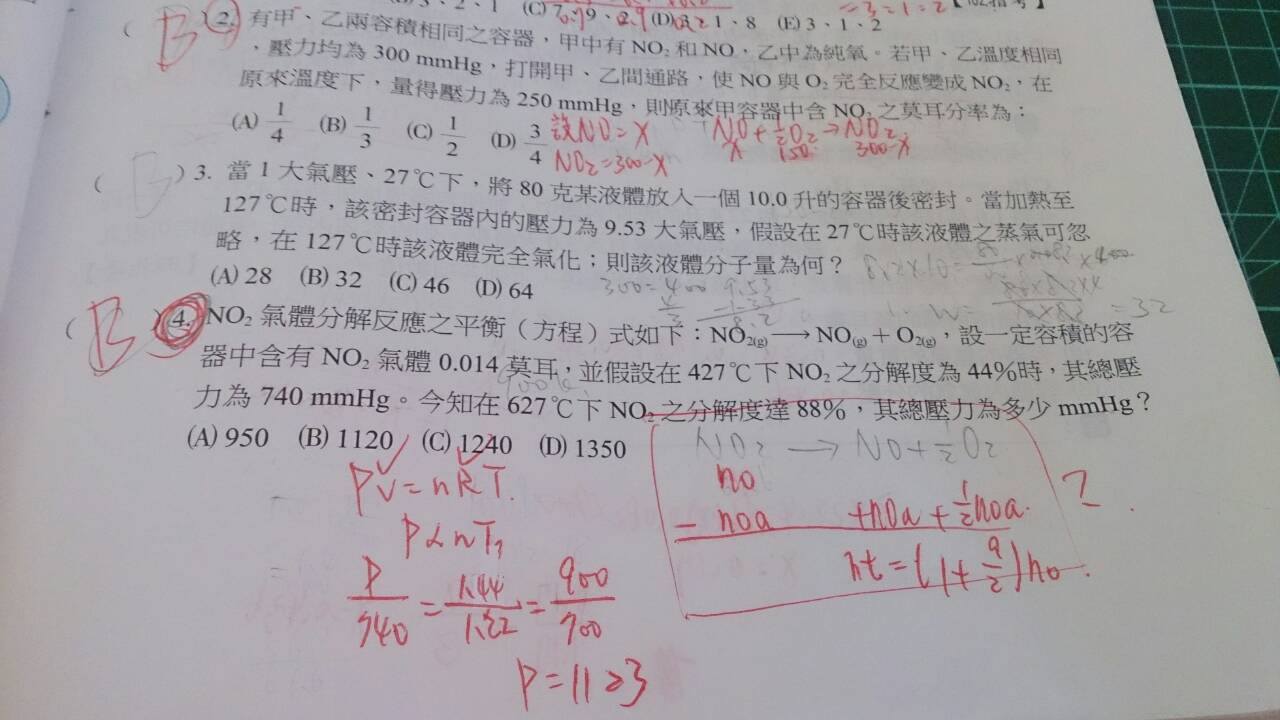 (C) 7、9、2、9 (D) 3、2、1、8 (E) 3、1、2
( B ) 2. 有甲、乙兩容積相同之容器,甲中有 NO₂ 和 NO,乙中為純氧。若甲、乙溫度相同
、壓力均為 300 mmHg,打開甲、乙間通路,使 NO 與 O₂ 完全反應變成 NO₂,在
原來溫度下,量得壓力為 250 mmHg,則原來甲容器中含 NO₂ 之莫耳分率為:
(A) 1/4 (B) 1/3 (C) 1/2 (D) 3/4
設NO=x
NO₂=300-x
NO + ½O₂ → NO₂
x 150 300-x
( B ) 3. 當 1 大氣壓、27℃下,將 80 克某液體放入一個 10.0 升的容器後密封。當加熱至
127℃時,該密封容器內的壓力為 9.53 大氣壓,假設在 27℃時該液體之蒸氣可忽
略,在 127℃時該液體完全氣化;則該液體分子量為何?
(A) 28 (B) 32 (C) 46 (D) 64
= 32
( B ) 4. NO₂ 氣體分解反應之平衡(方程)式如下:NO₂(g) ⟶ NO(g) + O₂(g),設一定容積的容
器中含有 NO₂ 氣體 0.014 莫耳,並假設在 427℃下 NO₂ 之分解度為 44%時,其總壓
力為 740 mmHg。今知在 627℃下 NO₂ 之分解度達 88%,其總壓力為多少 mmHg?
(A) 950 (B) 1120 (C) 1240 (D) 1350
NO₂ → NO + ½O₂
n₀
- n₀a +n₀a + ½n₀a
nt = (1 + a/2) n₀
?
PV = nRT
P ∝ nT
P/740 = 1.44/1.22 = 900/700
P = 1123